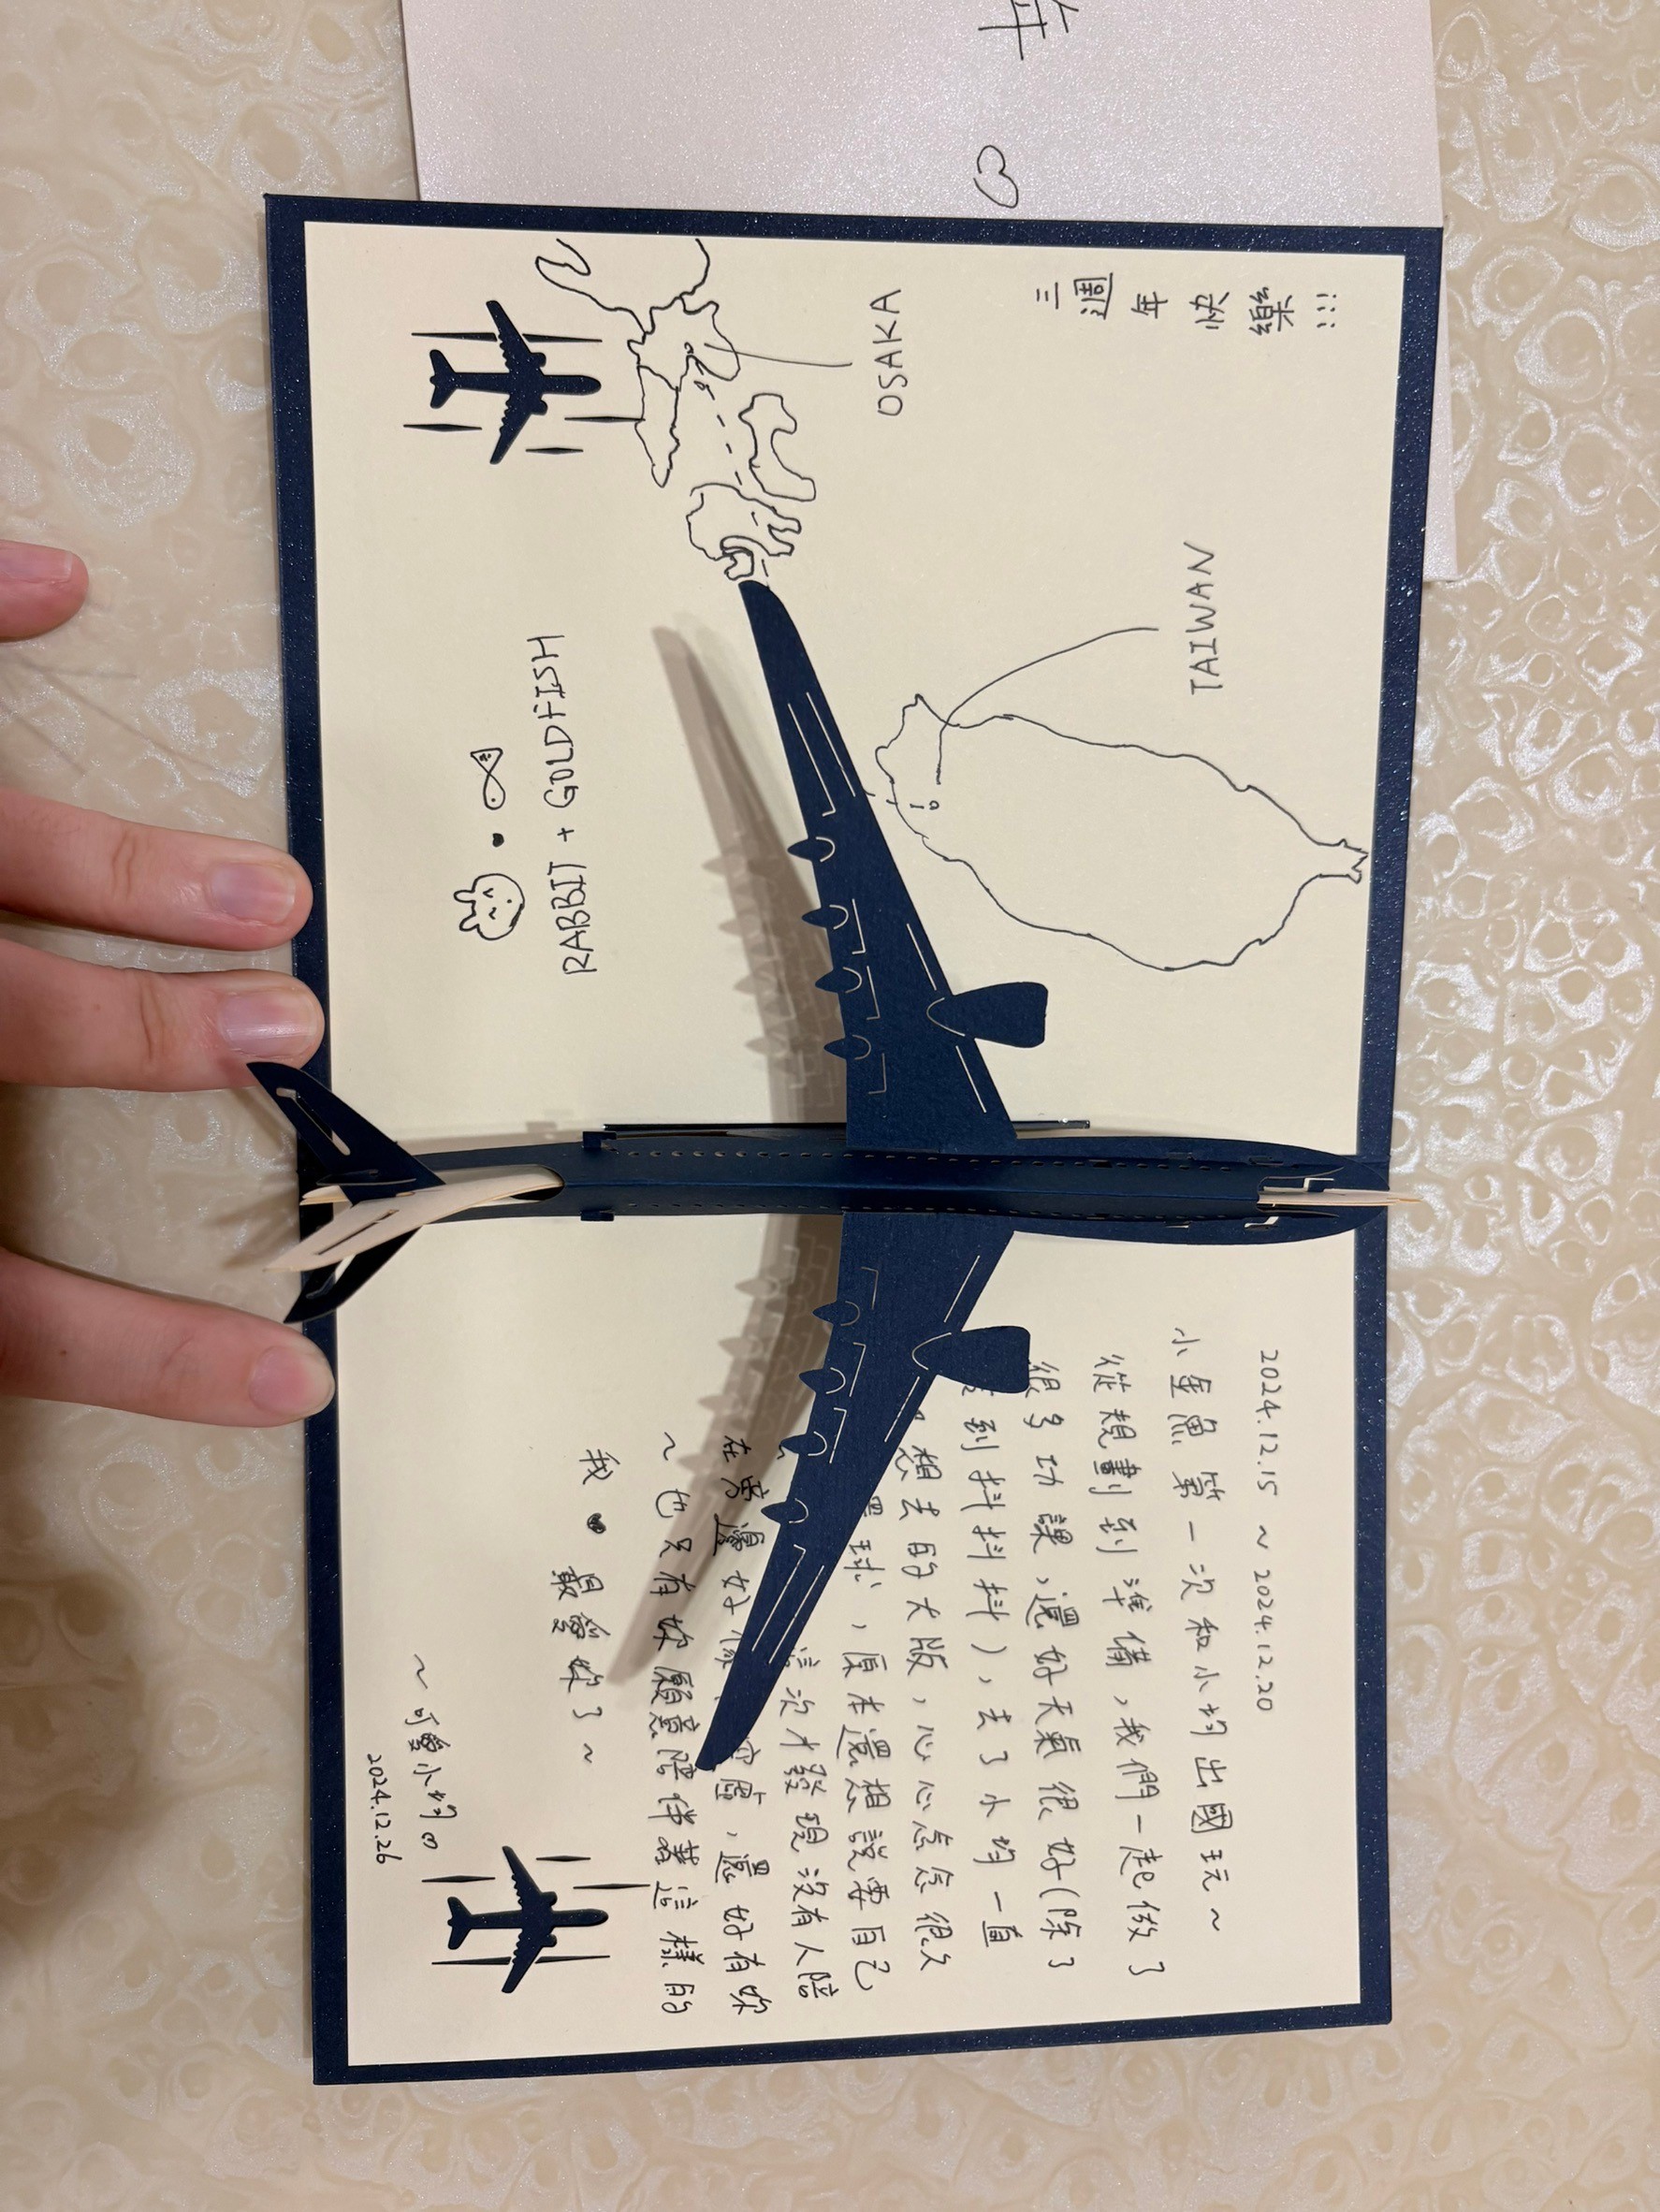 三週年快樂!!!
TAIWAN
OSAKA
RABBIT + GOLDFISH
2024.12.15 ~ 2024.12.20
小金魚第一次和小均出國玩~
從規劃到準備,我們一起做了
很多功課,還好天氣很好(除了
到抖抖抖),去了小均一直
想去的大版,心心念念很久
環球,原本還想說要自己
這次才發現沒有人陪
在旁邊好像 空虛,還好有妳
~也只有妳願意陪伴著這樣的
我♥最愛妳了~
~可愛小均
2024.12.26